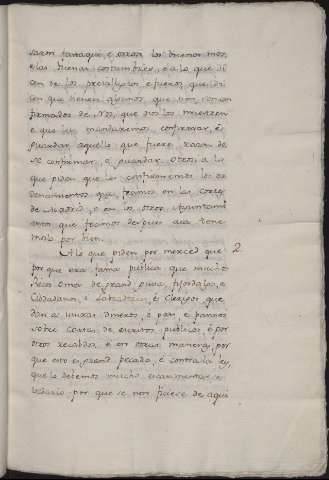 usaron fasta aqui e otrosi los buenos usos,
e las buenas costumbres, e a lo que di
cen de los previllegios e fueros que di
cen que tienen algunos que non son con
firmados de Nos, que nos los muestren
e que los mandaremos confirmar, e
guardar aquello que fuere razon de
se confirmar, e guardar. Otrosi a lo
que piden que les confirmemos los or
denamientos que fecimos en las cortes
de Madrid, e en los otros Ayuntami
entos que fecimos despues aca tene
moslo por bien.
A lo que piden por merced que 2.
por que era fama publica que muchos
Ricos omes de grand guisa, fijosdalgo, e
Ciudadanos, e e Clerigos que
dan a usuras dineros, e pan, e pannos
sobre cartas de escritos publicos, e por
otros recabdos, e en otras maneras, por
que esto es grand pecado, e contra la ley,
que lo debemos mucho escarmentar, e
vedarlo por que se non ficiese de aqui